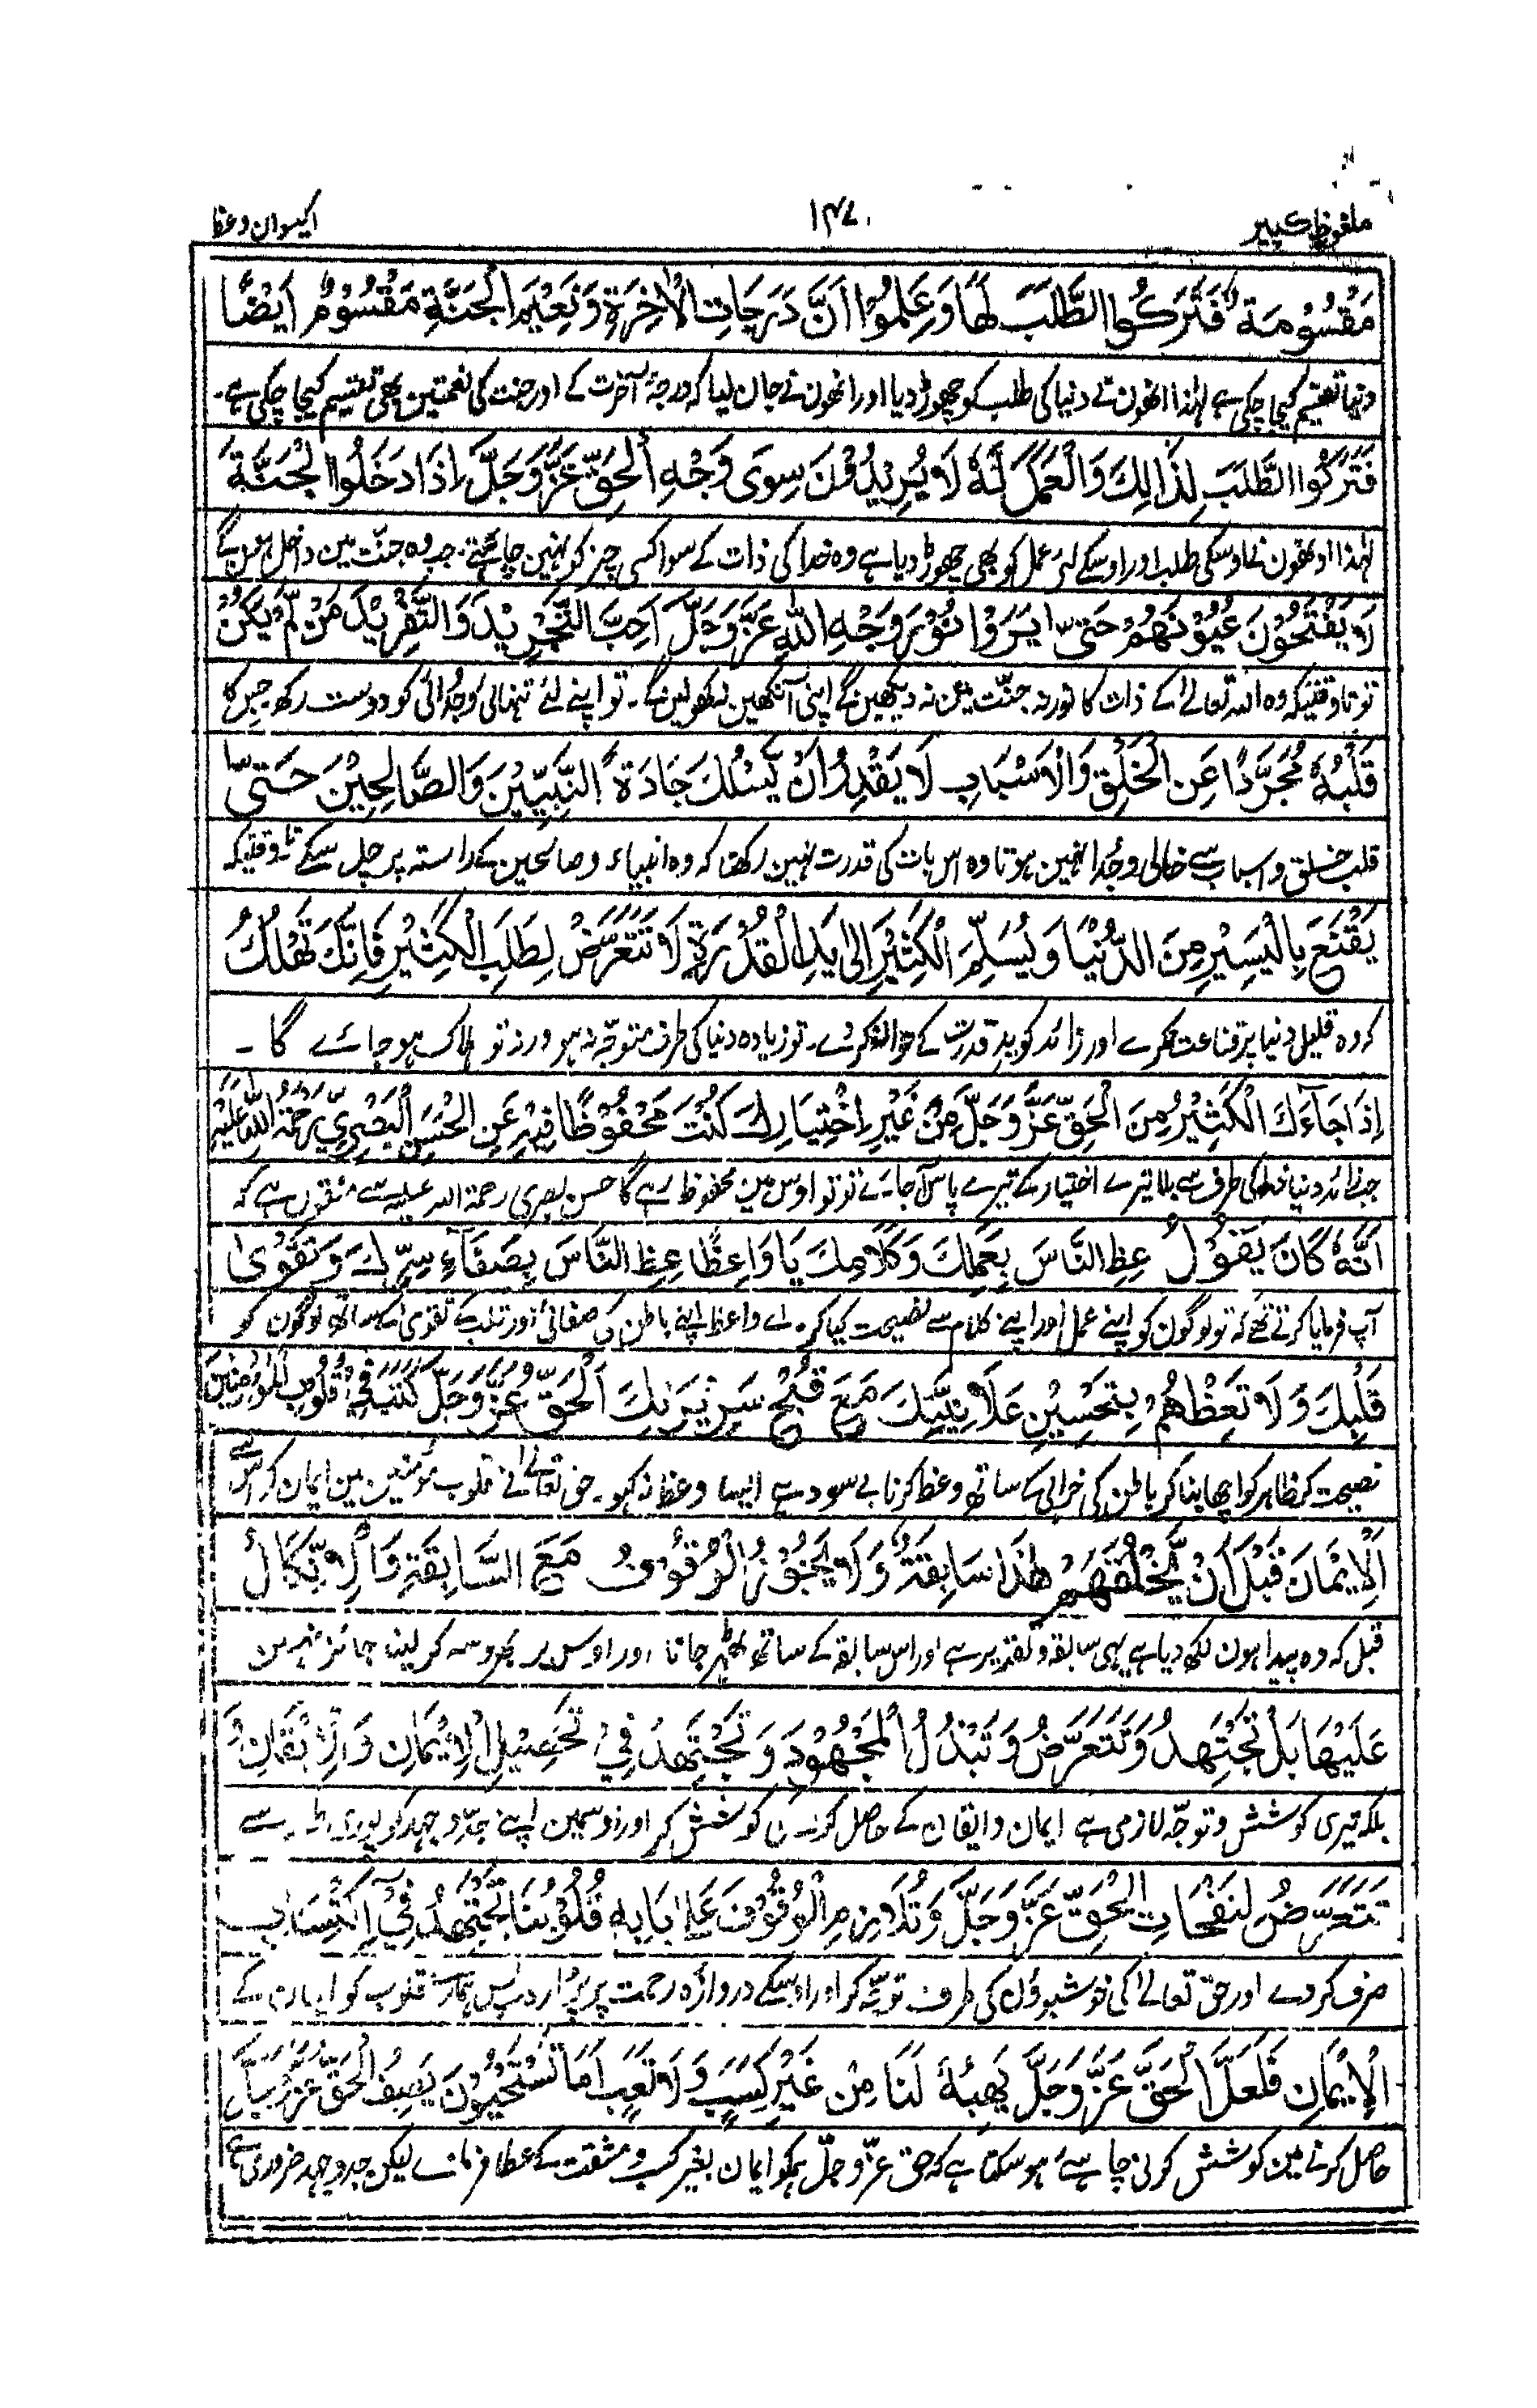 ملفوظ کبیر ۱۴۷ اکیسوان وعظ
مَقْسُوْمَةٌ فَتَرَكُوا الطَّلَبَ لَهَا وَعَلِمُوْا اَنَّ دَرَجَاتِ الْاٰخِرَةِ وَنَعِيْمَ الْجَنَّةِ مَقْسُوْمٌ اَيْضًا
دنیا تقسیم کیجا چکی ہے لہٰذا انھون نے دنیا کی طلب کو چھوڑ دیا اور انھون نے جان لیا کہ درجۂ آخرت کے اور جنت کی نعمتین بھی تقسیم کیجا چکی ہے۔
فَتَرَكُوا الطَّلَبَ لِذٰالِكَ وَالْعَمَلَ لَهٗ لَا يُرِيْدُوْنَ سِوَى وَجْهِ الْحَقِّ عَزَّوَجَلَّ اِذَا دَخَلُوا الْجَنَّةَ
لہٰذا اونھون نے اوسکی طلب اور اوسکے لئے عمل کو بھی چھوڑ دیا ہے وہ خدا کی ذات کے سوا کسی چیز کو نہین چاہتے۔ جب وہ جنت مین داخل ہون گے
لَا يَفْتَحُوْنَ عُيُوْنَهُمْ حَتّٰى يَرَوْا نُوْرَ وَجْهِ اللّٰهِ عَزَّوَجَلَّ اَحِبَّ التَّجْرِيْدَ وَالتَّفْرِيْدَ مَنْ لَّمْ يَكُنْ
تو تاوقتیکہ وہ اللہ تعالےٰ کے ذات کا نور نہ جنت مین نہ دیکھین گے اپنی آنکھین نہ کھولین گے۔ تو اپنے لئے تنہائی و جُدائی کو دوست رکھ جس کا
قَلْبُهٗ مُجَرَّدًا عَنِ الْخَلْقِ وَالْاَسْبَابِ لَا يَقْدِرُ اَنْ يَّسْلُكَ جَادَةَ النَّبِيّٖيْنَ وَالصَّالِحِيْنَ حَتّٰى
قلب خلق و اسباب سے خالی و جُدا نہین ہوتا وہ اس بات کی قدرت نہین رکھتا کہ وہ انبیاء و صالحین کے راستہ پر چل سکے تاوقتیکہ
يَقْنَعَ بِالْيَسِيْرِ مِنَ الدُّنْيَا وَيُسَلِّمَ الْكَثِيْرَ اِلٰى يَدِ الْقُدْرَةِ لَا تَتَعَرَّضْ لِطَلَبِ الْكَثِيْرِ فَاِنَّكَ تَهْلُكُ
کہ وہ قلیل دنیا پر قناعت نکرے اور زائد کو یدِ قدرت کے حوالہ نکردے۔ تو زیادہ دنیا کی طرف متوجہ نہ ہو ورنہ تو ہلاک ہو جائے گا ۔
اِذَا جَآءَكَ الْكَثِيْرُ مِنَ الْحَقِّ عَزَّوَجَلَّ مِنْ غَيْرِ اِخْتِيَارِكَ كُنْتَ مَحْفُوْظًا فِيْهِ عَنِ الْحَسَنِ الْبَصْرِيِّ رَحْمَةُ اللّٰهِ عَلَيْهِ
جب زائد دنیا خدا کی طرف سے بلا تیرے اختیار کے تیرے پاس آجائے تو تو اوس مین محفوظ رہے گا حسن بصری رحمۃ اللہ علیہ سے منقول ہے کہ
اَنَّهٗ كَانَ يَقُوْلُ عِظِ النَّاسَ بِعَمَلِكَ وَكَلَامِكَ يَا وَاعِظًا عِظِ النَّاسَ بِصَفَآءِ سِرِّكَ وَتَقْوٰى
آپ فرمایا کرتے تھے کہ تو لوگون کو اپنے عمل اور اپنے کلام سے نصیحت کیا کر۔ اے واعظ اپنے باطن کی صفائی اور قلب کے تقویٰ کے ساتھ لوگون کو
قَلْبِكَ وَلَا تَعِظْهُمْ بِتَحْسِيْنِ عَلَانِيَّتِكَ مَعَ قُبْحِ سَرِيْرَتِكَ اَلْحَقُّ عَزَّوَجَلَّ كَتَبَ فِيْ قُلُوْبِ الْمُؤْمِنِيْنَ
نصیحت کر ظاہر کو اچھا بنا کر باطن کی خرابی کے ساتھ وعظ کرنا بے سود ہے ایسا وعظ نہ کہو۔ حق تعالےٰ نے قلوب مؤمنین مین ایمان کو اس سے
الْاِيْمَانَ قَبْلَ اَنْ يَّخْلُقَهُمْ هٰذَا سَابِقَةٌ وَلَا يَجُوْزُ الْوُقُوْفُ مَعَ السَّابِقَةِ وَالْاِتِّكَالُ
قبل کہ وہ پیدا ہون لکھ دیا ہے یہی سابقہ و تقدیر ہے اور اس سابقہ کے ساتھ ٹھہر جانا اور اوس پر بھروسہ کر لینا جائز نہین
عَلَيْهَا بَلْ تَجْتَهِدُ وَتَتَعَرَّضُ وَتَبْذُلُ الْمَجْهُوْدَ وَتَجْتَهِدُ فِيْ تَحْصِيْلِ الْاِيْمَانِ وَالْاِيْقَانِ وَ
بلکہ تیری کوشش و توجہ لازمی ہے ایمان و ایقان کے حاصل کرنے کی کوشش کر اور اوسمین اپنے جد و جہد کو پوری سے
تَتَعَرَّضُ لِنَفَحَاتِ الْحَقِّ عَزَّوَجَلَّ وَتُلَازِمِ الْوُقُوْفَ عَلٰى بَابِهٖ قُلُوْبُنَا تَجْتَهِدُ فِيْ اِكْتِسَابِ
صرف کردے اور حق تعالےٰ کی خوشبوؤن کی طرف توجہ کر اور اوسکے دروازہ رحمت پر پڑا رہ پس ہمارے قلوب کو ایمان کے
الْاِيْمَانِ فَلَعَلَّ الْحَقَّ عَزَّوَجَلَّ يَهِبُهٗ لَنَا مِنْ غَيْرِ كَسْبٍ وَلَا تَعَبٍ اَمَا تَسْتَحْيُوْنَ يَصِفُ الْحَقُّ عَزَّوَجَلَّ
حاصل کرنے مین کوشش کرنی چاہئے ہو سکتا ہے کہ حق عزّ وجلّ ہمکو ایمان بغیر کسب و مشقت کے عطا فرمائے لیکن جد و جہد ضروری ہے